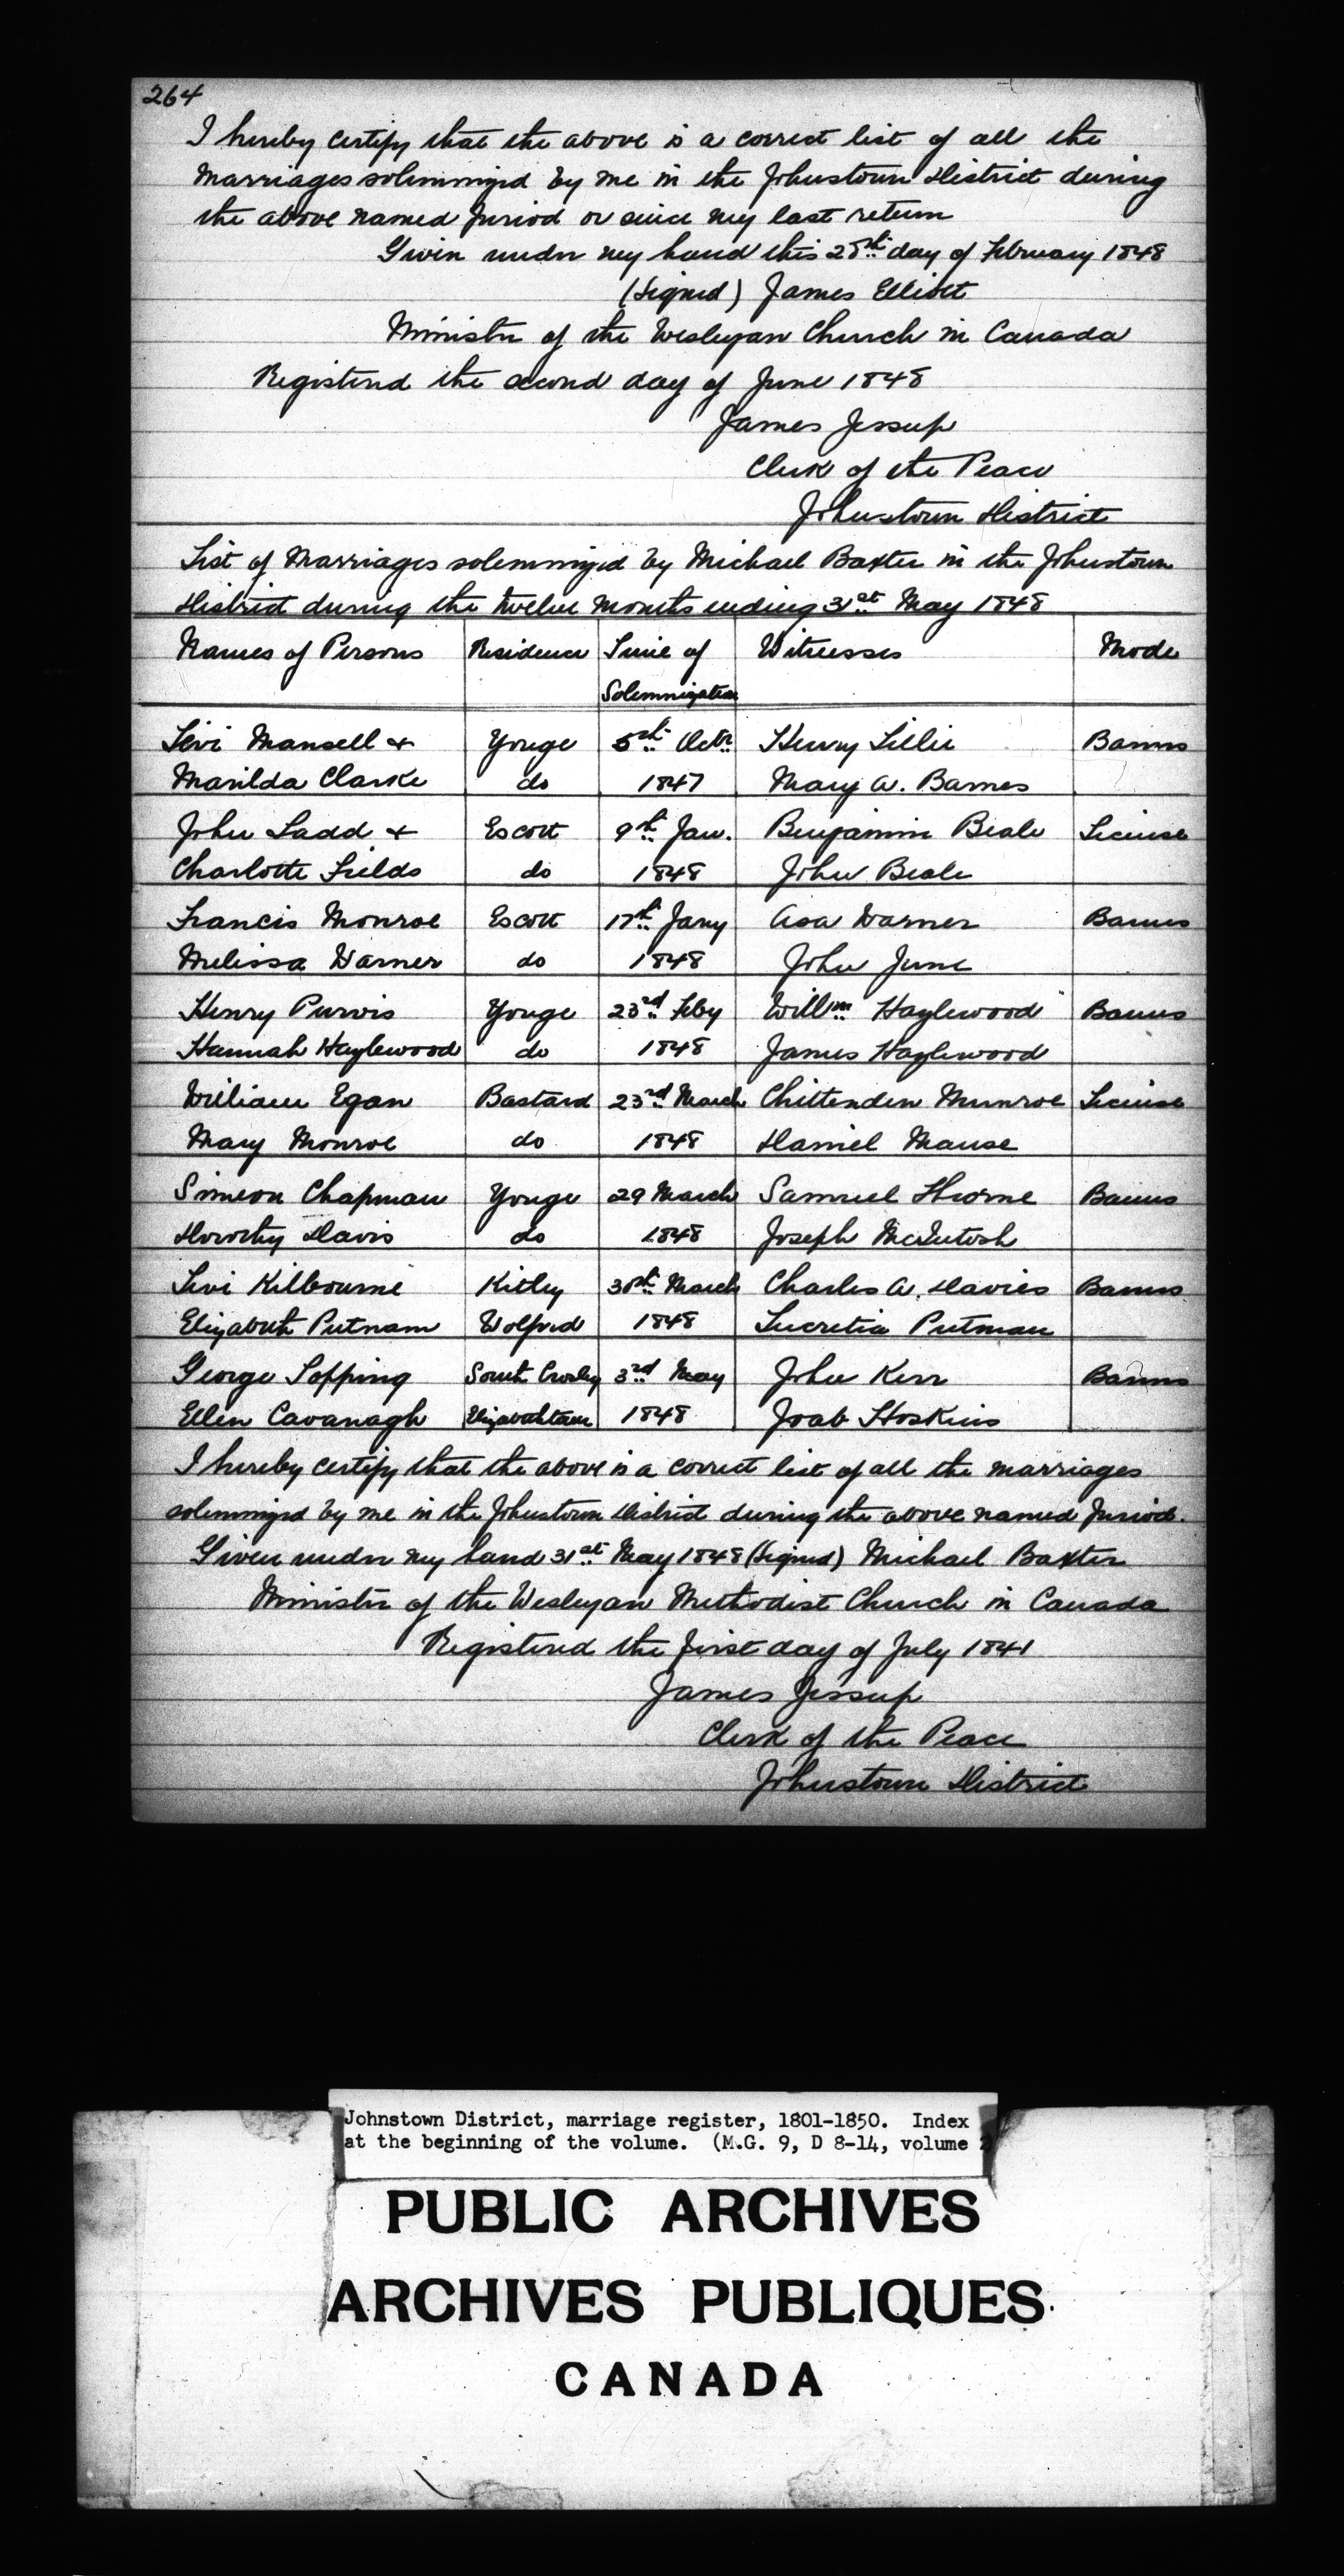 264
I hereby certify that the above is a correct list of all the
Marriages solemnized by me in the Johnstown District during
the above named period or since my last return
Given under my hand this 28th day of February 1848
(Signed) James Elliott
Minister of the Wesleyan Church in Canada
Registered the second day of June 1848
James Jessup
Clerk of the Peace
Johnstown District
List of Marriages solemnized by Michael Baxter in the Johnstown
District during the twelve months ending 31st May 1848
Names of Persons Residence Time of Witnesses Mode
Solemnization
Levi Mansell + Yonge 5th Octr Henry Lillie Banns
Marilda Clarke do 1847 Mary A. Barnes
John Ladd + Escott 9th Jan. Benjamin Beale License
Charlotte Fields do 1848 John Beale
Francis Monroe Escott 17th Jany Asa Warner Banns
Melissa Warner do 1848 John June
Henry Purvis Yonge 23rd Feby Willm Haylewood Banns
Hannah Haylewood do 1848 James Haylewood
William Egan Bastard 23rd March Chittenden Munroe License
Mary Monroe do 1848 Daniel Mause
Simeon Chapman Yonge 29 March Samuel Thorne Banns
Dorothy Davis do 1848 Joseph McIntosh
Levi Kilbourne Kitley 30th March Charles A. Davies Banns
Elizabeth Putnam Wolford 1848 Lucretia Putman
George Topping South Crosby 3rd May John Kerr Banns
Ellen Cavanagh Elizabethtown 1848 Joab Hoskins
I hereby certify that the above is a correct list of all the marriages
solemnized by me in the Johnstown District during the above named period.
Given under my hand 31st May 1848 (Signed) Michael Baxter
Minister of the Wesleyan Methodist Church in Canada
Registered the first day of July 1841
James Jessup
Clerk of the Peace
Johnstown District
Johnstown District, marriage register, 1801-1850. Index
at the beginning of the volume. (M.G. 9, D 8-14, volume
PUBLIC ARCHIVES
ARCHIVES PUBLIQUES
CANADA